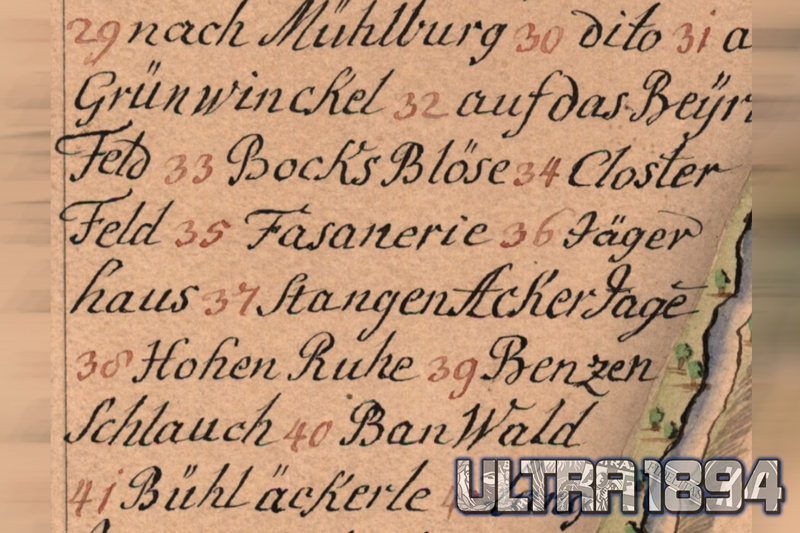 29 nach Mühlburg 30 dito 31 a
Grünwinckel 32 auf das Beÿr
Feld 33 Bocks Blöse 34 Closter
Feld 35 Fasanerie 36 Jäger
haus 37 Stangen Acker Jage
38 Hohen Ruhe 39 Benzen
Schlauch 40 Ban Wald
41 Bühl äckerle
ULTRA1894